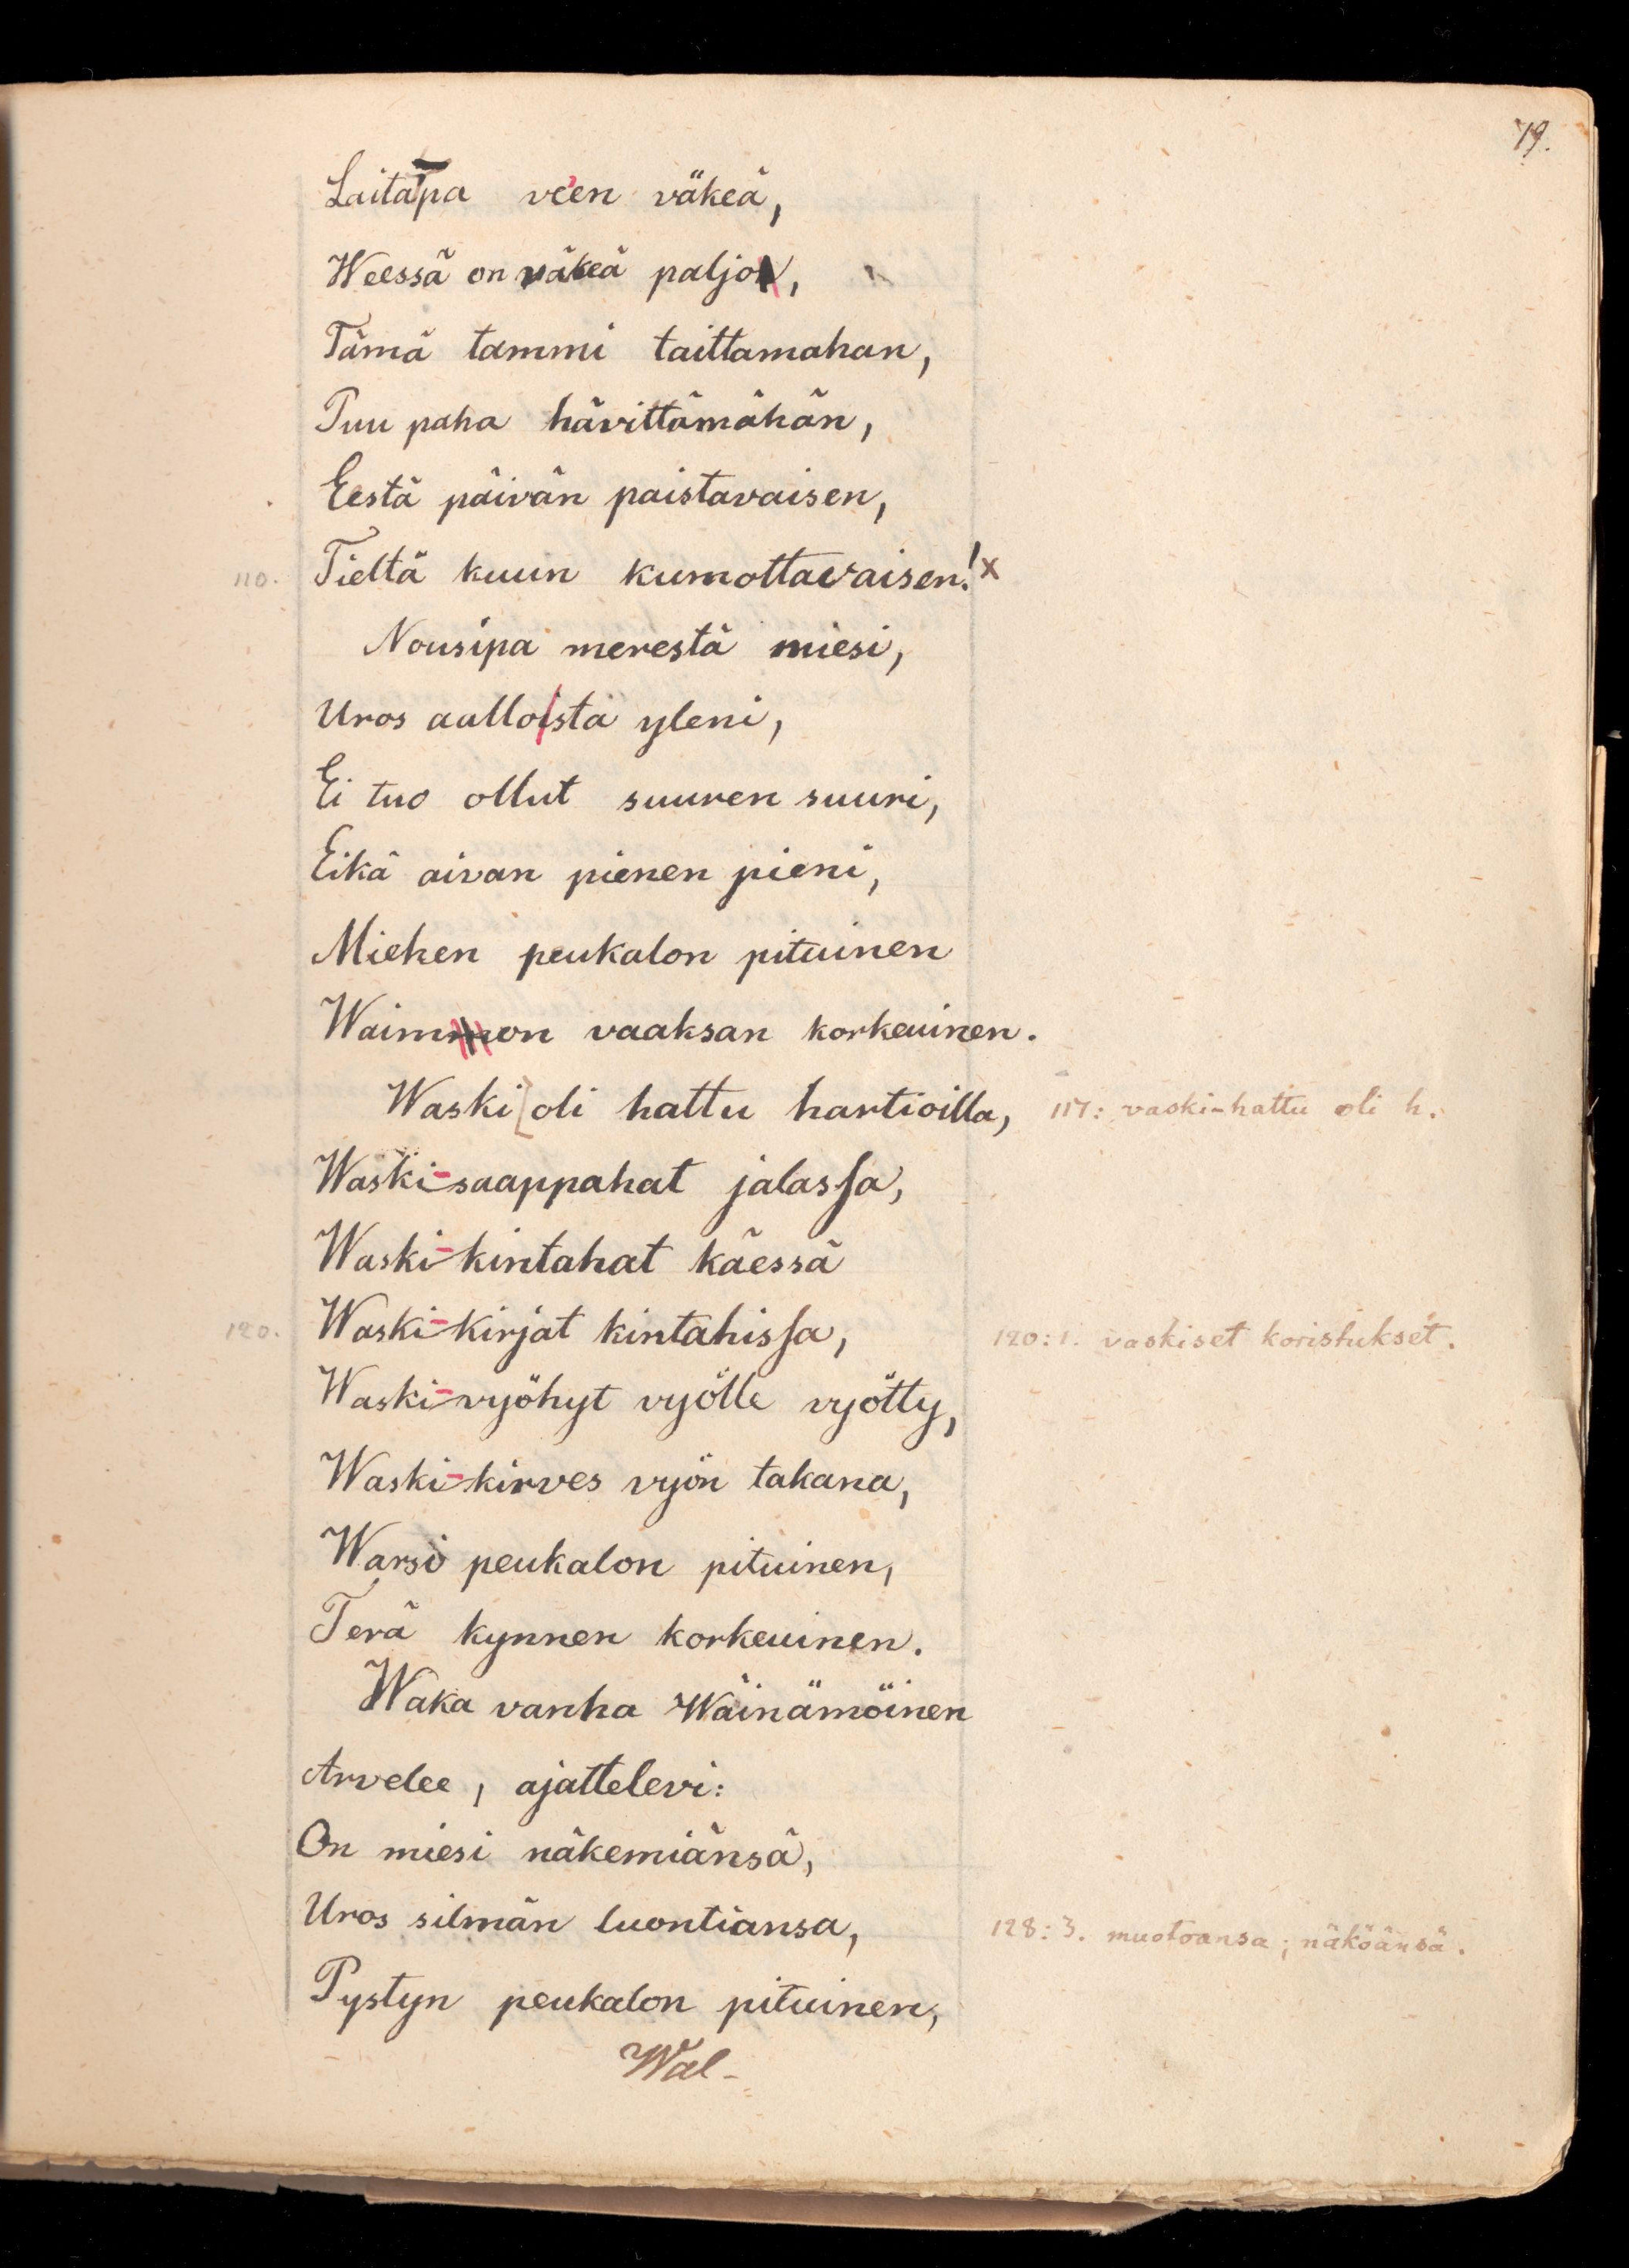 79.
Laitapa ve'en väkeä,
Weessä on väkeä paljo,
Tämä tammi taittamahan,
Puu paha hävittämähän,
Eestä päivän paistavaisen,
110. Tieltä kuun kumottavaisen! x
Nousipa merestä miesi,
Uros aallosta yleni,
Ei tuo ollut suuren suuri,
Eikä aivan pienen pieni,
Miehen peukalon pituinen
Waimon vaaksan korkeuinen.
Waski oli hattu hartioilla, 117: vaski-hattu oli h.
Waski-saappahat jalassa,
Waski-kintahat käessä
120. Waski-kirjat kintahissa, 120: 1. vaskiset koristukset.
Waski-vyöhyt vyölle vyötty,
Waski-kirves vyön takana,
Warsi peukalon pituinen,
Terä kynnen korkeuinen.
Waka vanha Wäinämöinen
Arvelee, ajattelevi:
On miesi näkemiänsä,
Uros silmän luontiansa, 128: 3. muotoansa; näköänsä.
Pystyn peukalon pituinen,
Wäl-